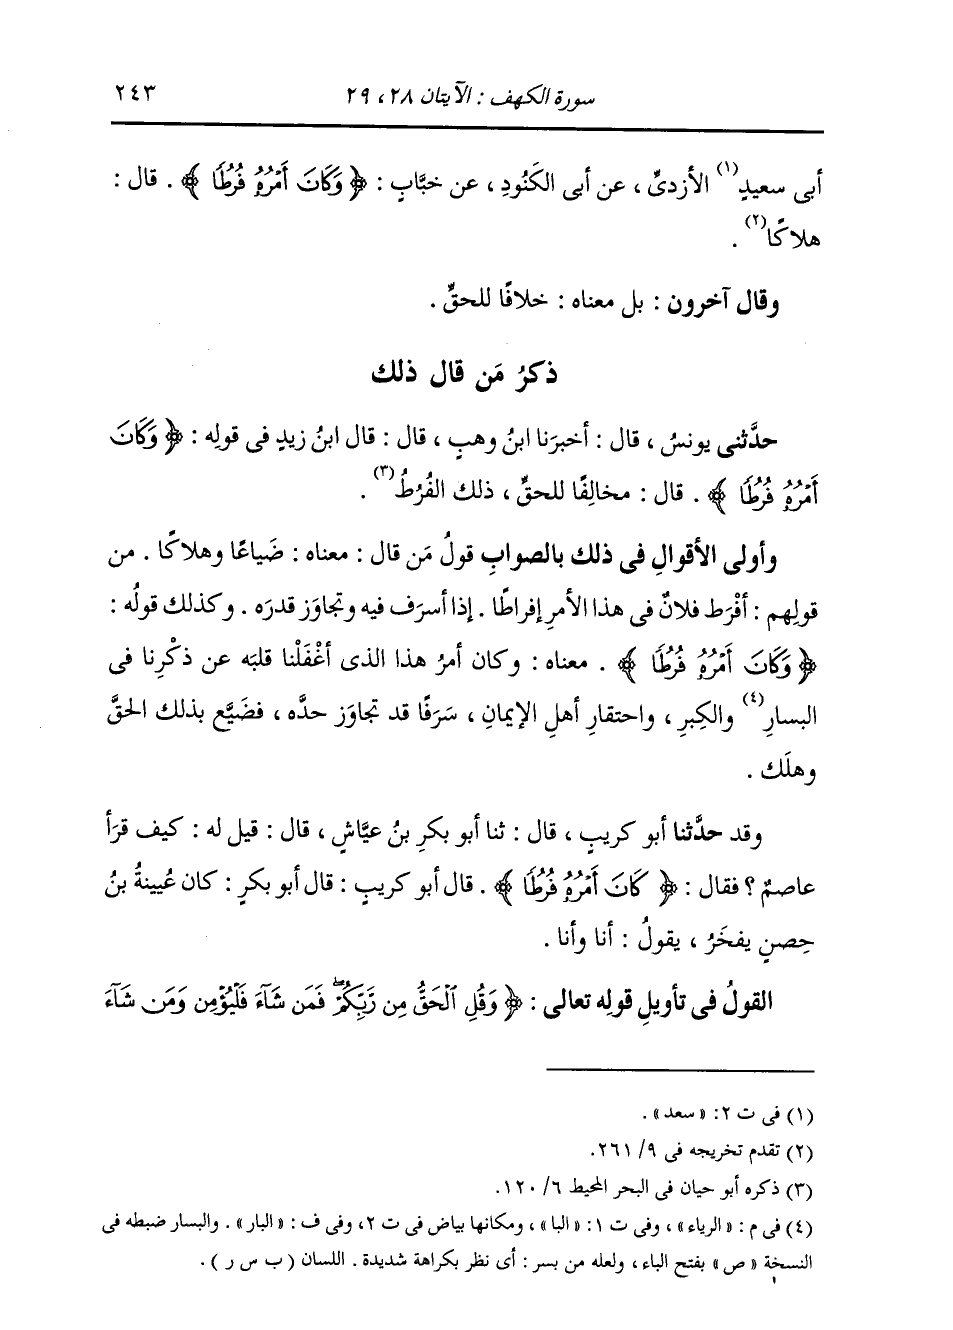 سورة الكهف : الآيتان ٢٨ ، ٢٩ ٢٤٣
أبى سعيدٍ(١) الأزدىِّ ، عن أبى الكَنُودِ ، عن خبَّابٍ : ﴿ وَكَانَ أَمْرُهُ فُرُطًا ﴾ . قال :
هلاكًا(٢) .
وقال آخرون : بل معناه : خلافًا للحقِّ .
ذكرُ مَن قال ذلك
حدَّثنى يونسُ ، قال : أخبرَنا ابنُ وهبٍ ، قال : قال ابنُ زيدٍ فى قولِه : ﴿ وَكَانَ
أَمْرُهُ فُرُطًا ﴾ . قال : مخالِفًا للحقِّ ، ذلك الفُرُطُ(٣) .
وأولى الأقوالِ فى ذلك بالصوابِ قولُ مَن قال : معناه : ضَياعًا وهلاكًا . من
قولِهم : أفْرَط فلانٌ فى هذا الأمرِ إفراطًا . إذا أسرَف فيه وتجاوَز قدرَه . وكذلك قولُه :
﴿ وَكَانَ أَمْرُهُ فُرُطًا ﴾ . معناه : وكان أمرُ هذا الذى أغْفَلْنا قلبَه عن ذكْرِنا فى
البسارِ(٤) والكِبرِ ، واحتقارِ أهلِ الإيمانِ ، سَرَفًا قد تجاوَز حدَّه ، فضَيَّع بذلك الحقَّ
وهلَك .
وقد حدَّثنا أبو كريبٍ ، قال : ثنا أبو بكرِ بنُ عيَّاشٍ ، قال : قيل له : كيف قرَأ
عاصمٌ ؟ فقال : ﴿ كَانَ أَمْرُهُ فُرُطًا ﴾ . قال أبو كريبٍ : قال أبو بكرٍ : كان عُيينةُ بنُ
حِصنٍ يفخَرُ ، يقولُ : أنا وأنا .
القولُ فى تأويلِ قولِه تعالى : ﴿ وَقُلِ ٱلْحَقُّ مِن رَّبِّكُمْ ۖ فَمَن شَآءَ فَلْيُؤْمِن وَمَن شَآءَ
(١) فى ت ٢: « سعد » .
(٢) تقدم تخريجه فى ٩/ ٢٦١.
(٣) ذكره أبو حيان فى البحر المحيط ٦/ ١٢٠.
(٤) فى م : « الرياء » ، وفى ت ١: « البا » ، ومكانها بياض فى ت ٢، وفى ف : « البار » . والبسار ضبطه فى
النسخة « ص » بفتح الباء ، ولعله من بسر : أى نظر بكراهة شديدة . اللسان ( ب س ر ) .